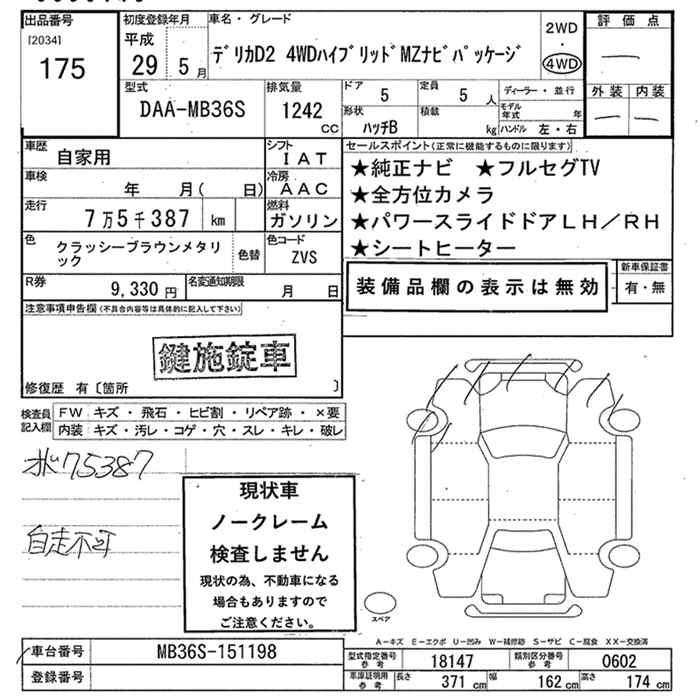 出品番号 初度登録年月 車名・グレード 2WD ・ 4WD 評価点
[2034] 175 平成 29 5月 デリカD2 4WDハイブリッドMZナビパッケージ —
型式 排気量 ドア 定員 ディーラー・並行 外装 内装
DAA-MB36S 1242 cc 5 5人 モデル年式 年 — —
形状 積載
ハッチB kg ハンドル 左・右
車歴 自家用 シフト IAT セールスポイント(正常に機能するものに限ります)
車検 年 月( 日) 冷房 AAC ★純正ナビ ★フルセグTV
★全方位カメラ
走行 7万5千387 km 燃料 ガソリン ★パワースライドドアLH/RH
色 クラッシーブラウンメタリック 色替 色コード ZVS ★シートヒーター
R券 9,330円 名変通知期限 月 日 装備品欄の表示は無効 新車保証書 有・無
注意事項申告欄(不具合内容等は具体的に記入して下さい)
鍵施錠車
修復歴 有〔箇所 〕
検査員記入欄 FW キズ・飛石・ヒビ割・リペア跡・×要
内装 キズ・汚レ・コゲ・穴・スレ・キレ・破レ
ボ 75387
自走不可
現状車
ノークレーム
検査しません
現状の為、不動車になる
場合もありますので
ご注意ください。
スペア
A-キズ E-エクボ U-凹み W-補修跡 S-サビ C-腐食 XX-交換済
車台番号 MB36S-151198 型式指定番号 参考 18147 類別区分番号 参考 0602
登録番号 車庫証明用 参考 長さ 371cm 幅 162cm 高さ 174cm